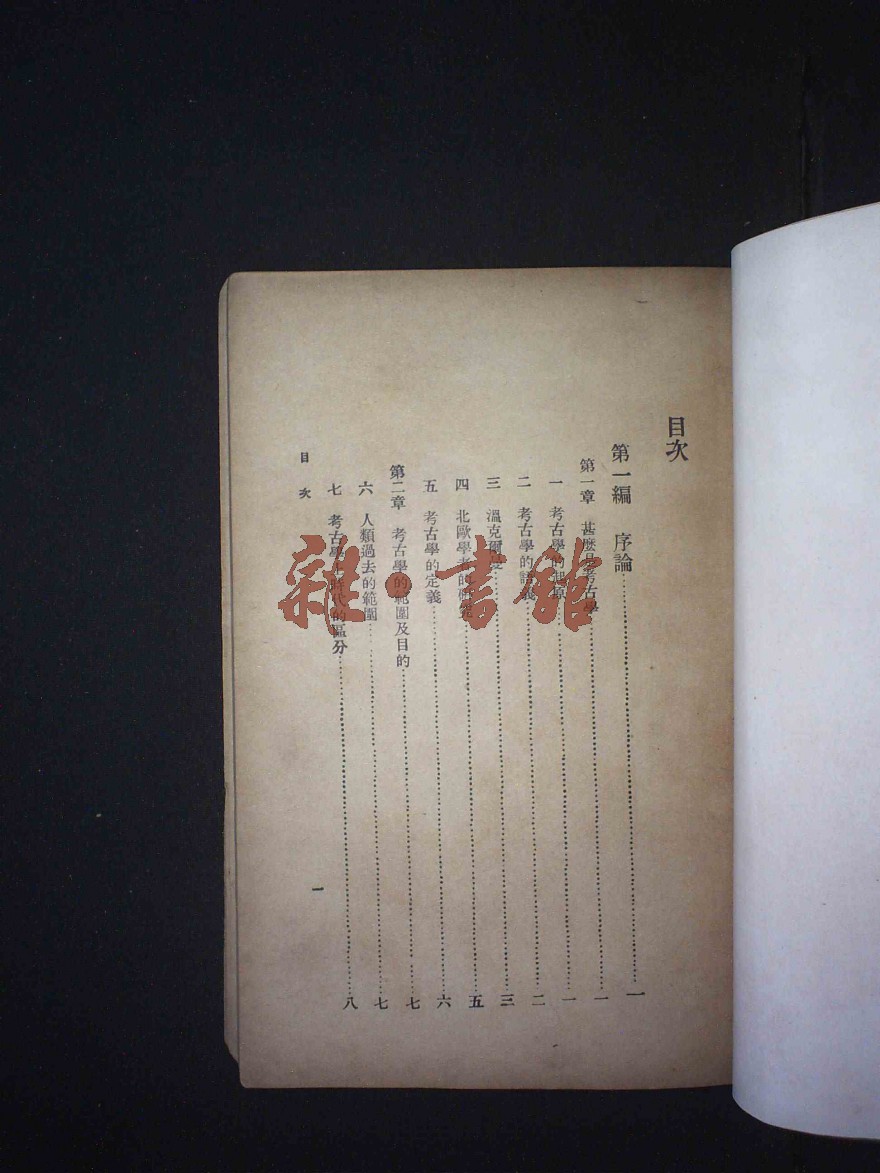 目次
第一編 序論……一
第一章 甚麼是考古學……一
一 考古學的起原……一
二 考古學的語義……二
三 溫克爾曼……三
四 北歐學者的研究……五
五 考古學的定義……六
第二章 考古學的範圍及目的……七
六 人類過去的範圍……七
七 考古學上時代的區分……八
目次
一
雜·書館